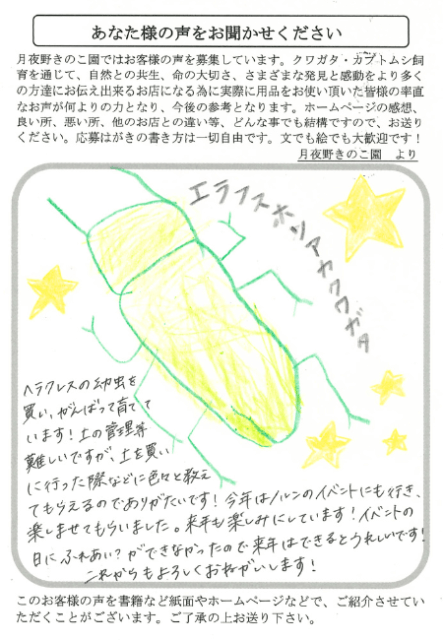 あなた様の声をお聞かせください
月夜野きのこ園ではお客様の声を募集しています。クワガタ・カブトムシ飼
育を通じて、自然との共生、命の大切さ、さまざまな発見と感動をより多く
の方達にお伝え出来るお店になる為に実際に用品をお使い頂いた皆様の率直
なお声が何よりの力となり、今後の参考となります。ホームページの感想、
良い所、悪い所、他のお店との違い等、どんな事でも結構ですので、お送り
ください。応募はがきの書き方は一切自由です。文でも絵でも大歓迎です！
月夜野きのこ園　より
エラフスホソアカクワガタ
ヘラクレスの幼虫を
買い、がんばって育てて
います！土の管理等
難しいですが、土を買い
に行った際などに色々と教え
てもらえるのでありがたいです！今年はノルンのイベントにも行き、
楽しませてもらいました。来年も楽しみにしています！イベントの
日にふれあい？ができなかったので来年はできるとうれしいです！
これからもよろしくおねがいします！
このお客様の声を書籍など紙面やホームページなどで、ご紹介させてい
ただくことがございます。ご了承の上お送り下さい。